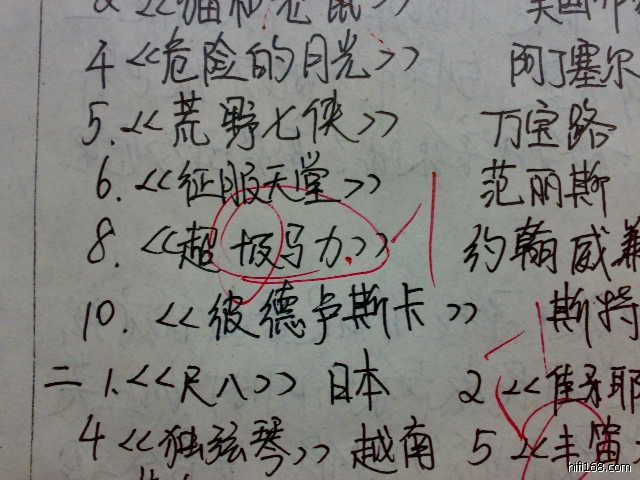 《猫和老鼠》
4 《危险的月光》 阿丁塞尔
5.《荒野七侠》 万宝路
6.《征服天堂》 范丽斯
8.《超坂马力》 约翰威
10.《彼德卢斯卡》 斯特
二 1.《尺八》 日本 2《佳美耶
4《独弦琴》 越南 5《丰笛
hifi168.com